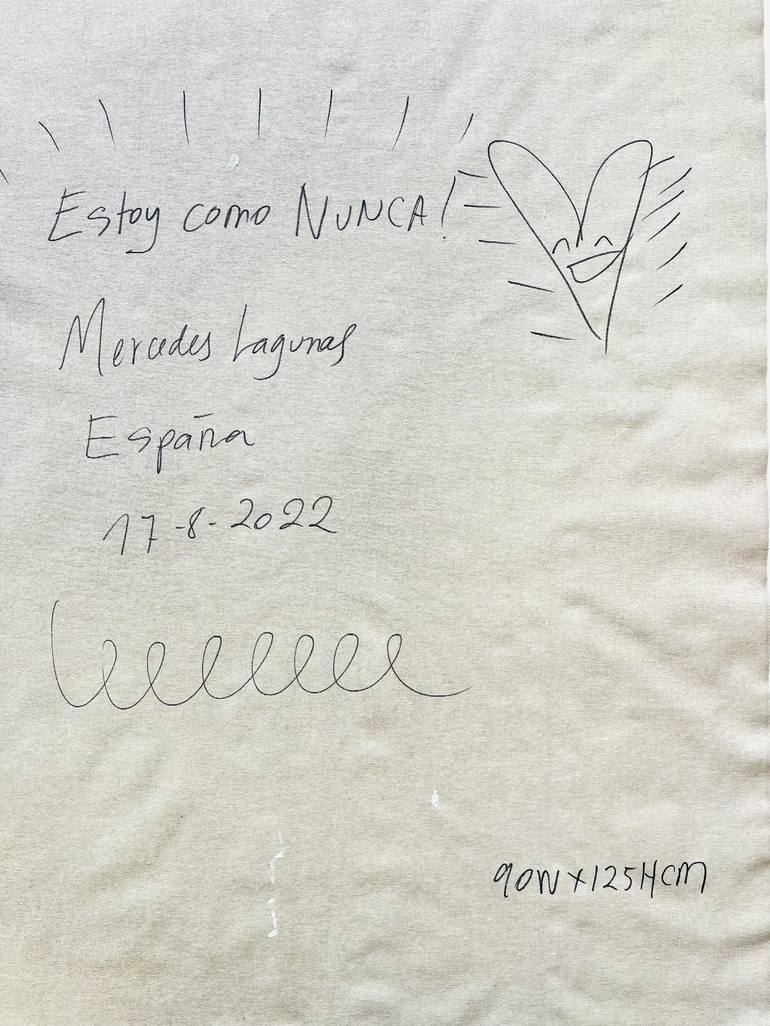 Estoy como NUNCA!
Mercedes Lagunas
España
17-8-2022
90W x 125H cm